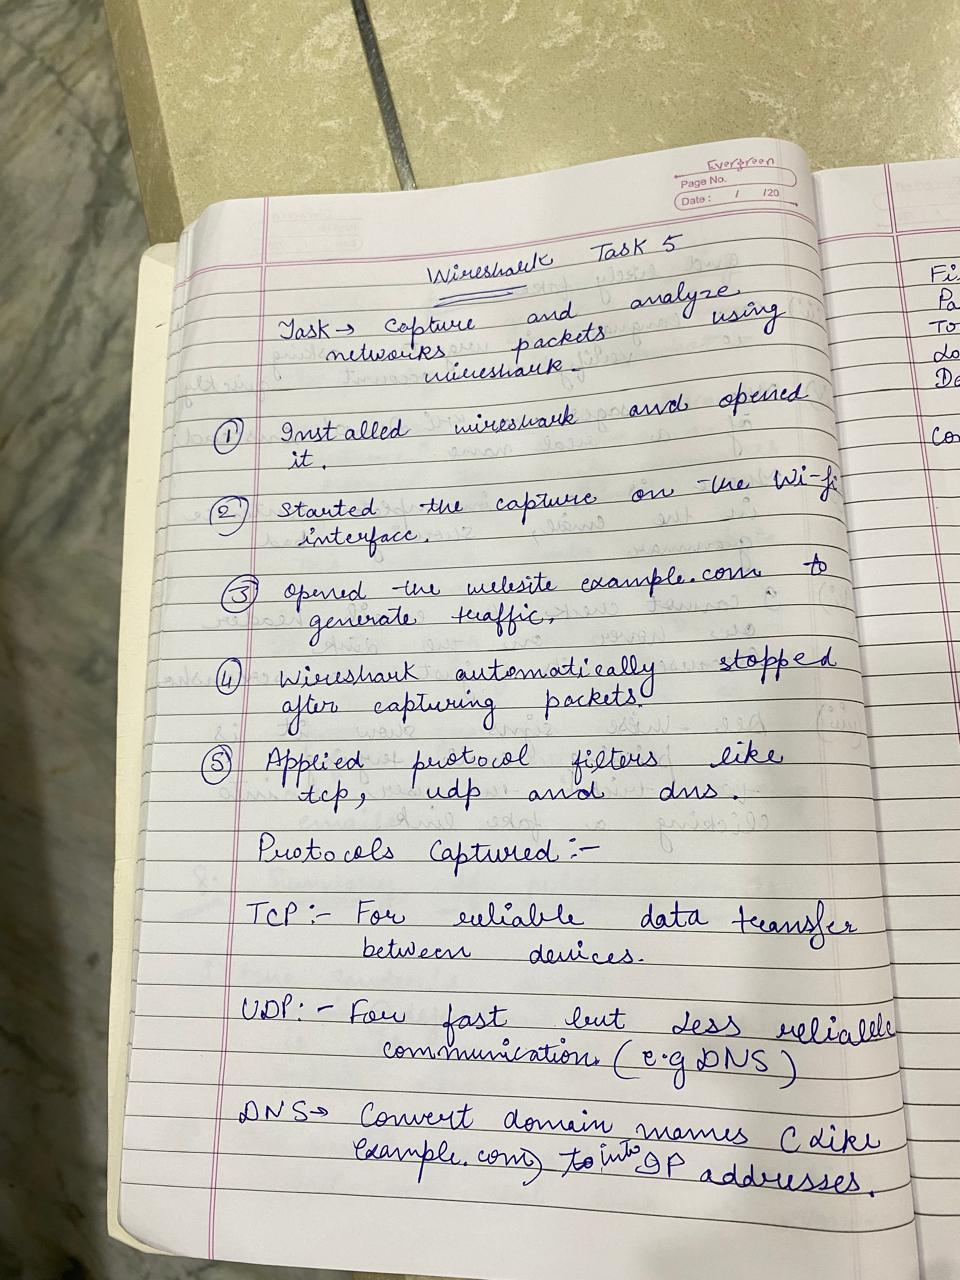 Evergreen
Page No.
Date : / /20
Wireshark Task 5
Task → Capture and analyze
networks packets using
wireshark.
① Installed wireshark and opened
it.
② Started the capture on the Wi-fi
interface.
③ Opened the website example.com to
generate traffic.
④ Wireshark automatically stopped
after capturing packets.
⑤ Applied protocol filters like
tcp, udp and dns.
Protocols Captured :-
TCP :- For reliable data transfer
between devices.
UDP :- For fast but Less reliable
communication. (e.g DNS)
DNS → Convert domain names (Like
example.com) to into IP addresses.
Fi
Pa
To
Lo
De
Co